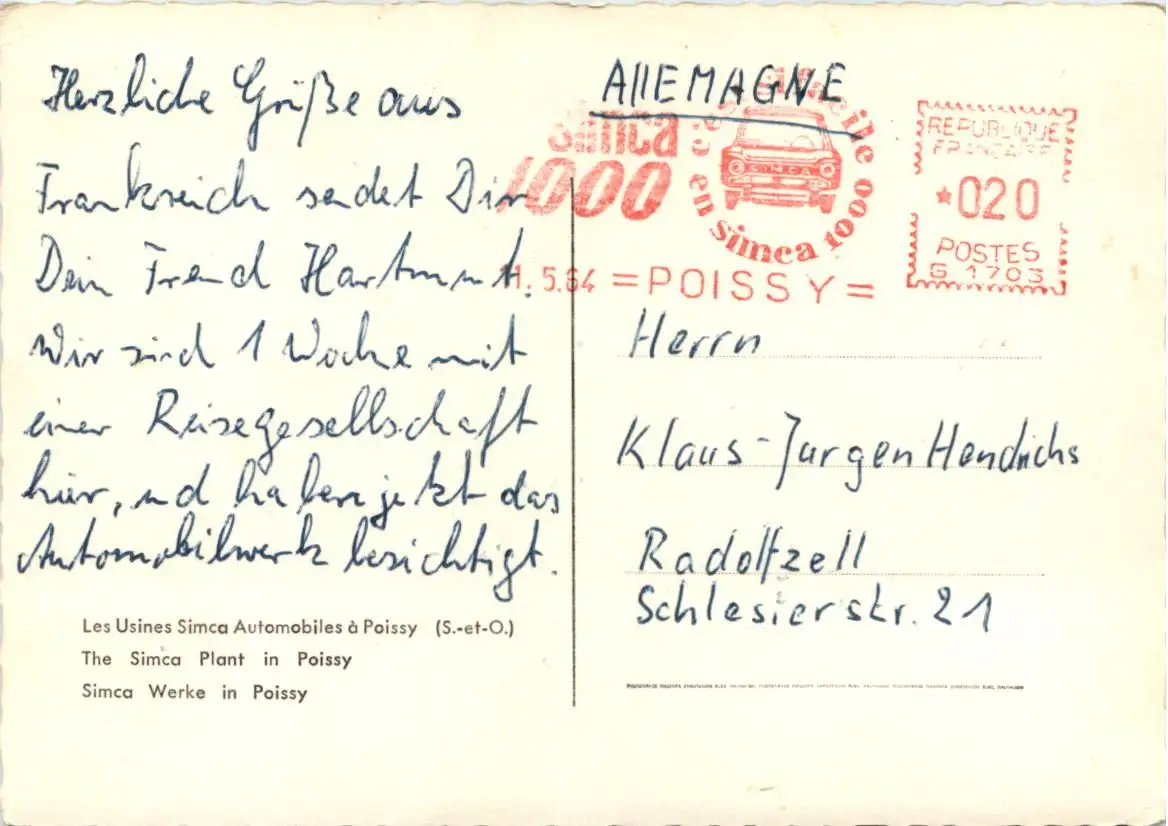 Herzliche Grüße aus
Frankreich sendet Dir
Dein Freund Hartmut.
Wir sind 1 Woche mit
einer Reisegesellschaft
hier, und haben jetzt das
Automobilwerk besichtigt.
Les Usines Simca Automobiles à Poissy (S.-et-O.)
The Simca Plant in Poissy
Simca Werke in Poissy
AllEMAGNE
simca
1000
c'est si facile
en simca 1000
SIMCA
.5.64 =POISSY=
REPUBLIQUE
FRANÇAISE
*020
POSTES
G.1703
Herrn
Klaus-Jurgen Hendrichs
Radolfzell
Schlesierstr. 21